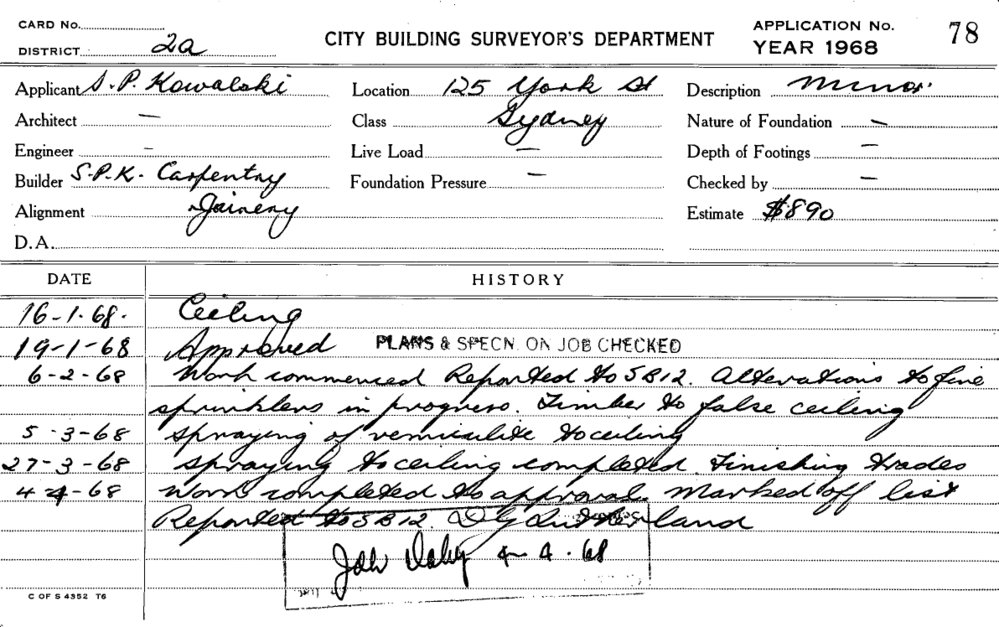 CARD No.
DISTRICT 2a
CITY BUILDING SURVEYOR'S DEPARTMENT
APPLICATION No. 78
YEAR 1968
Applicant S.P. Kowalski
Location 125 York St
Description Minor
Architect —
Class Sydney
Nature of Foundation —
Engineer —
Live Load —
Depth of Footings —
Builder S.P.K. Carpentry
Foundation Pressure —
Checked by —
Alignment Joinery
Estimate $890
D.A.
DATE HISTORY
16-1-68. Ceiling
19-1-68 Approved PLANS & SPECN. ON JOB CHECKED
6-2-68 Work commenced Reported to SB12. Alterations to fire
sprinklers in progress. Timber to false ceiling
5-3-68 Spraying of vermiculite to ceiling
27-3-68 Spraying to ceiling completed. Finishing trades
4-4-68 Work completed to approval. Marked off list
Reported to SB12. D G
4-4.68
C OF S 4352 T6